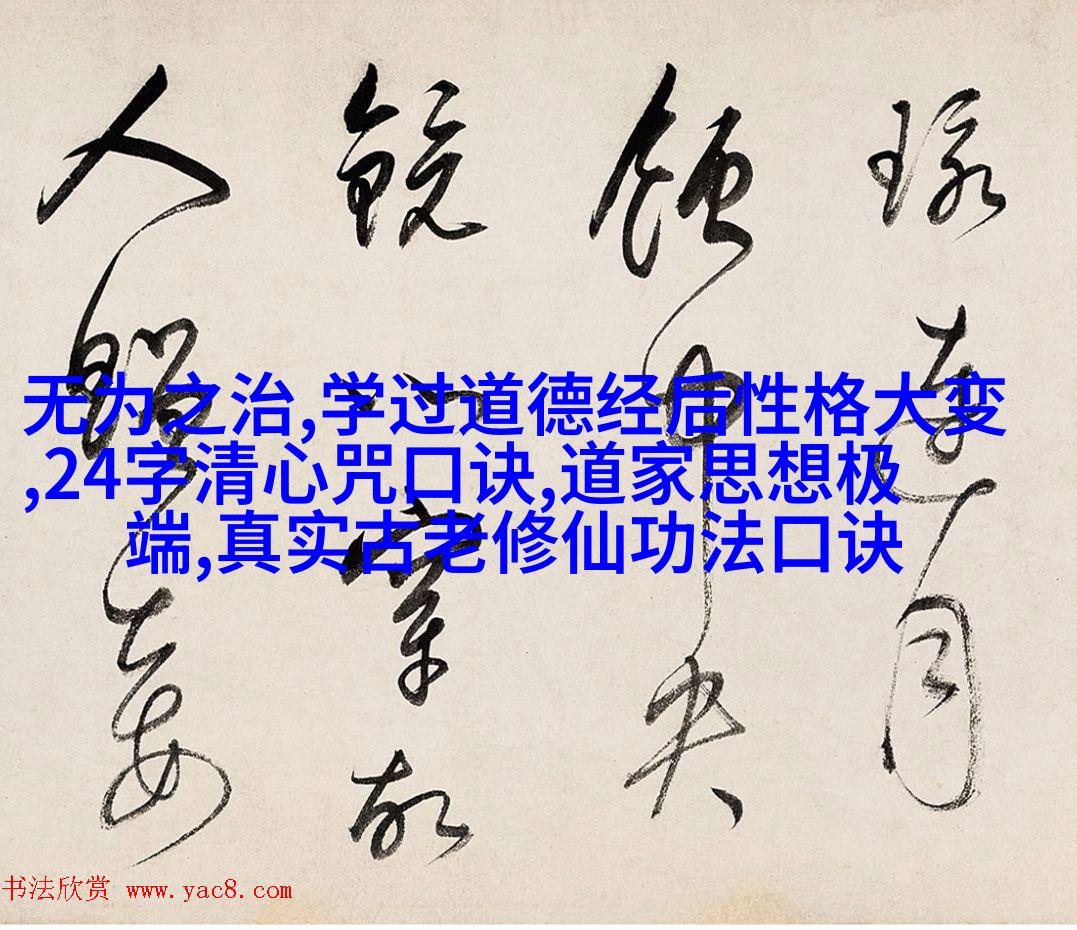 月
中央
镜
故
人
无为之治,学过道德经后性格大变
,24字清心咒口诀,道家思想极
端,真实古老修仙功法口诀
书法欣赏 www.yac8.com